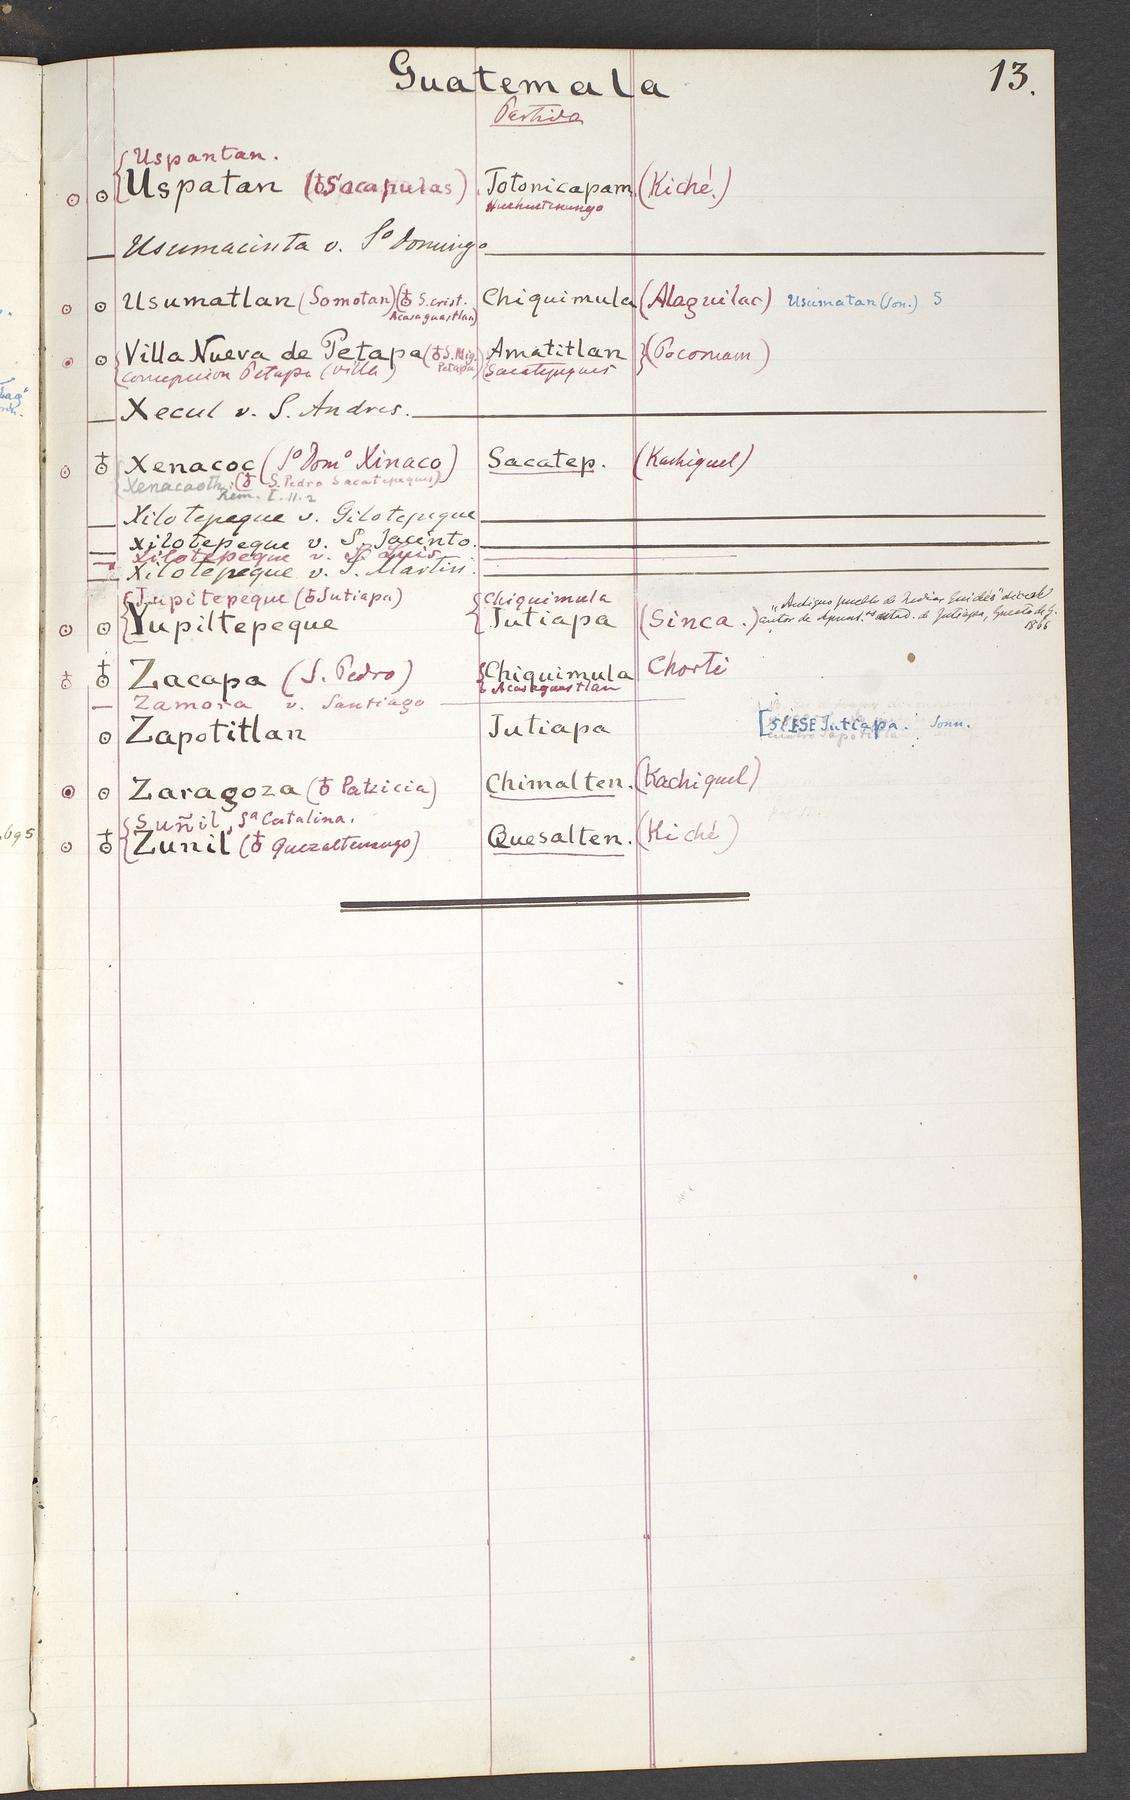 Guatemala 13.
Partido
{Uspantan.
Uspatan (♁Sacapulas) Totonicapam (Kiché.)
Huehuetenango
Usumacinta v. Sº Domingo
Usumatlan (Somotan) (♁ S. Crist. Chiquimula (Alaguilac) Usumatan (Son.) S
Acasaguastlan)
Villa Nueva de Petapa (♁ S. Mig. Amatitlan } (Pocomam)
Petapa)
{Concepcion Petapa (Villa) {Sacatepeques
Xecul v. S. Andres.
Xenacoc (Sº Domº Xinaco) Sacatep. (Kachiquel)
Xenacaoth. (♁ S. Pedro Sacatepeques)
Rem. I. 11. 2
Xilotepeque v. Gilotepeque
Xilotepeque v. S. Jacinto.
Xilotepeque v. S. Luis
Xilotepeque v. S. Martin.
{Jupitepeque (♁Jutiapa) {Chiquimula
Yupiltepeque Jutiapa (Sinca.)
„Antiguo pueblo de Indios
autor de Apunt.ˢ estad. de Jutiapa,
1866
Zacapa (S. Pedro) {Chiquimula Chorti
Acasaguastlan
Zamora v. Santiago
Zapotitlan Jutiapa [S/ESE Jutiapa. Sonn.
Zaragoza (♁ Patzicia) Chimalten. (Kachiquel)
{Suñil, Sª Catalina.
Zunil (♁ Quezaltenango) Quesalten. (Kiché)